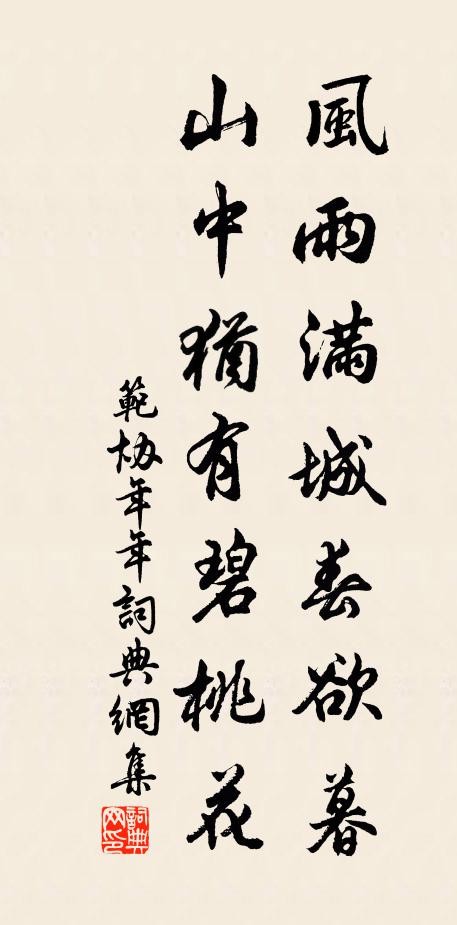 風雨滿城春欲暮
山中猶有碧桃花
範協年年詞典網集
詞典網印